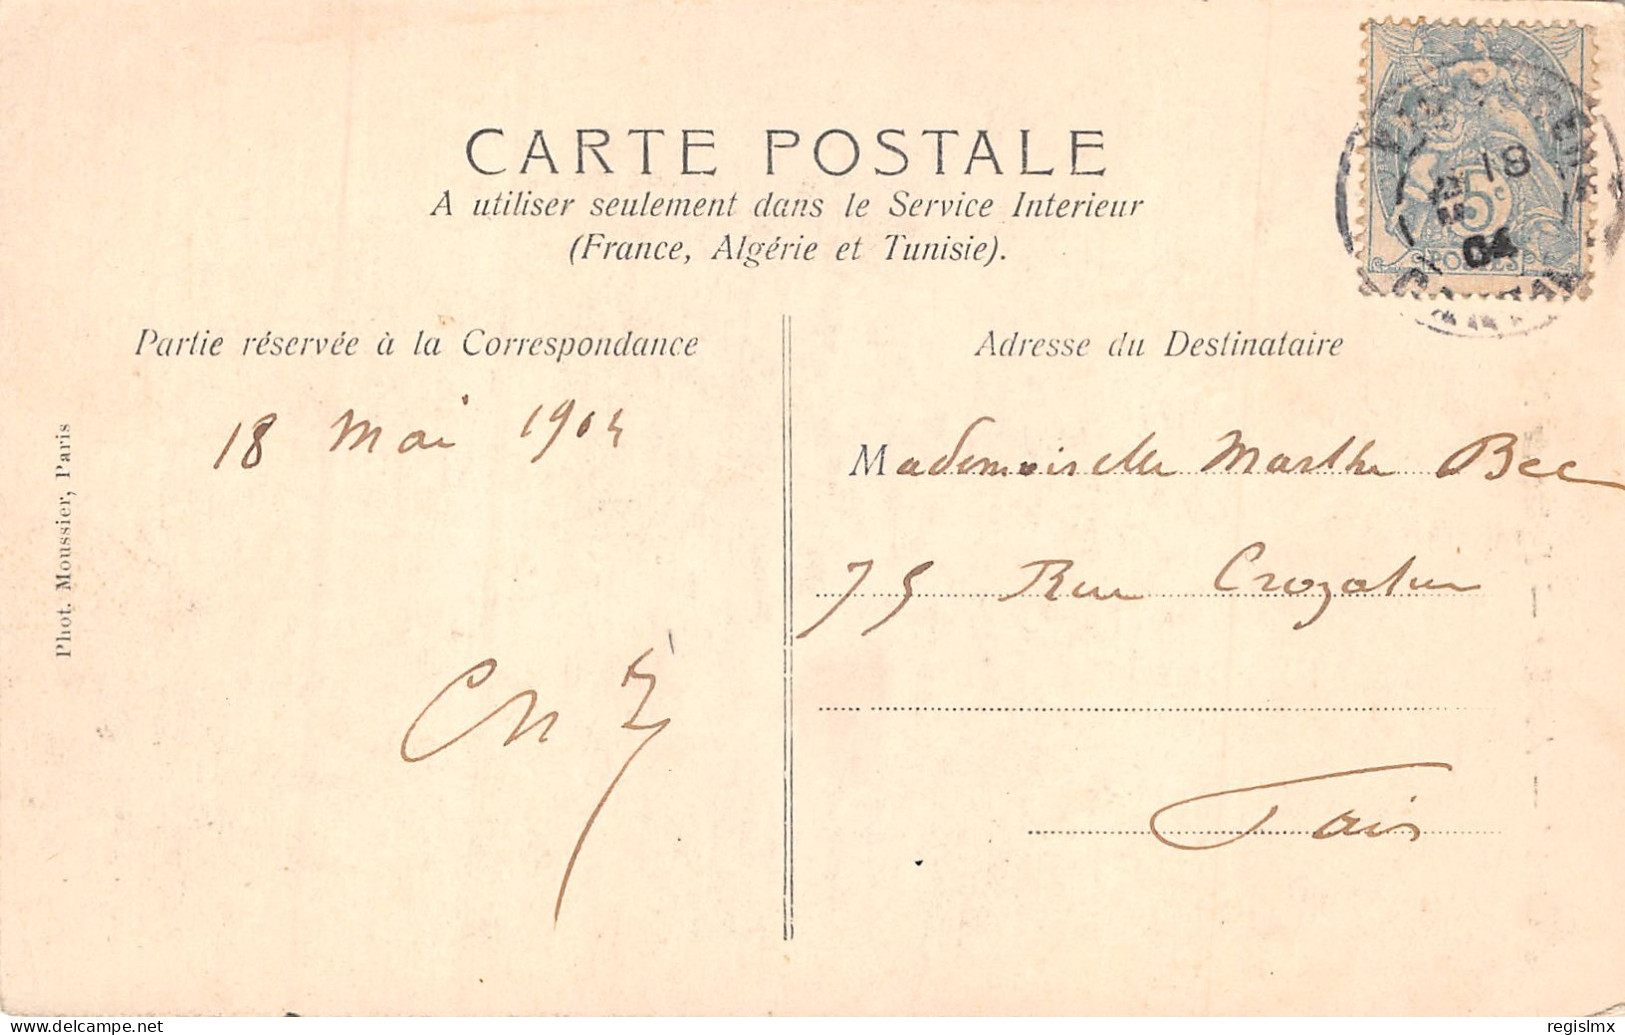 CARTE POSTALE
A utiliser seulement dans le Service Interieur
(France, Algérie et Tunisie).
Partie réservée à la Correspondance
Adresse du Destinataire
18 Mai 1904
Mademoiselle Marthe Bec
75 Rue Crozatier
Paris
Phot. Moussier, Paris
18
04
5c
POSTES
delcampe.net
regislmx